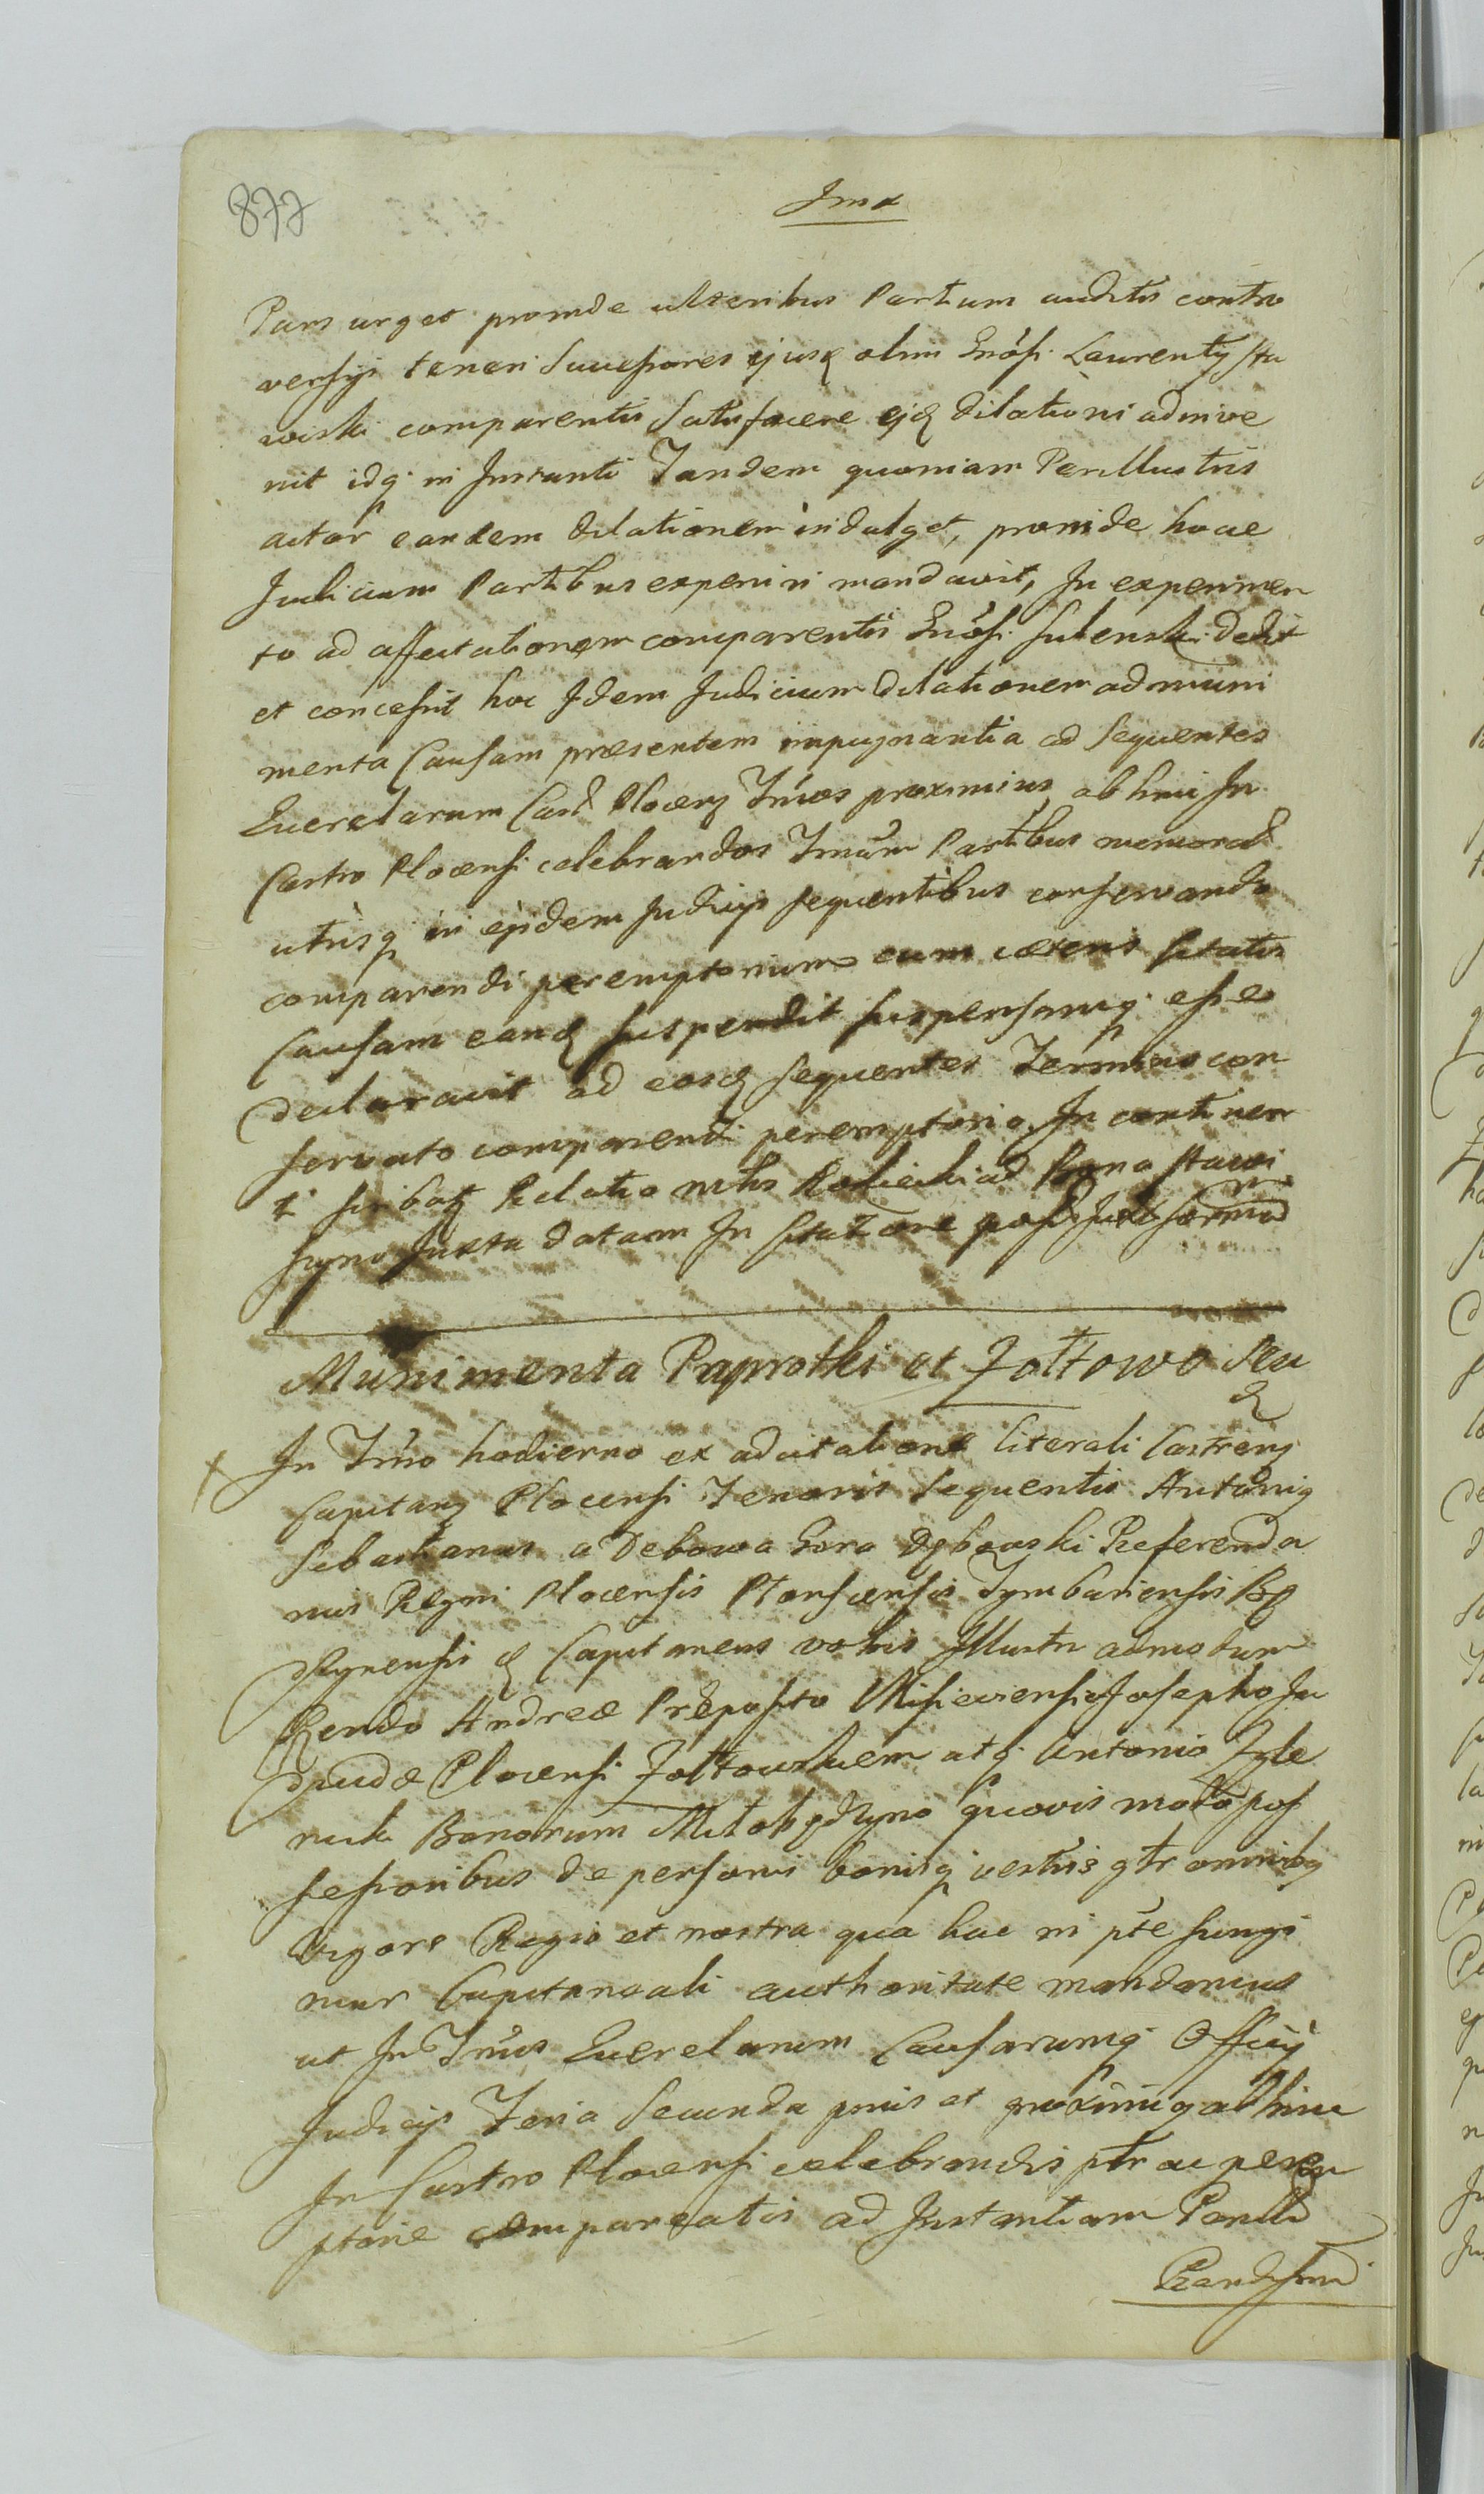 877
Jma
Pars urget proinde ulteribus Partium auditis contro
versijs teneri Successores ejusd olim Gnosi Laurentij Sta
wiski comparentis Satisfacere ejd dilationi adinve
nit idq in Instanti Tandem quoniam Perillustris
actor eandem dilationem indulget, proinde hocce
Judicium Partibus experiri mandavit, In experimen
to ad affectationem comparentis Gnosi Sulenski dedit
et concessit hoc Idem Judicium dilationem ad muni
menta Causam praesentem impugnantia ad Sequentes
Querelarum Cast Plocen Tmos proximius abhinc In
Castro Plocensi celebrandos Tmum Partibus memorat
utrisq in ejsdem Judicijs sequentibus conservando
comparendi peremptorium cum caeteris citatis
Causam eand suspendit suspensamq esse
declaravit ad eosd sequentes Terminos con
servato comparendi peremptorio. In continen
ti scribatz Relatio mtis ad Bona Stawi
syno Juxta datam In Citatione
Munimenta Paprotki et Zołtowo Seu
In Tmo hodierno ex adcitatione literali Castrens
Capitan Plocensi Tenoris Sequentis Antonig
Sebastianus a Debowa Gora Dębowski Referenda
rius Regni Plocensis Płonscensis Tymbariensis
Capitaneus vobis Illustri admodum
Rendo Andreae Praeposito Misievensi Josepho Ju
Plocensi Zołtowskiem atq Antonio Zyle
nieli Bonorum quovis modo pos
sessoribus de personis bonisq vestris gtr omnibg
Vigore Regia et nostra qua hac in pte fungi
mur Capitaneali authoritate mandamus
ut In Tmis Querelarum Causarumq Officij
Judicijs Feria Secunda pmis et proximig abhinc
In Castro Plocensi celebrandis ptr ac perem
ptorie compareatis ad Instantiam Perill